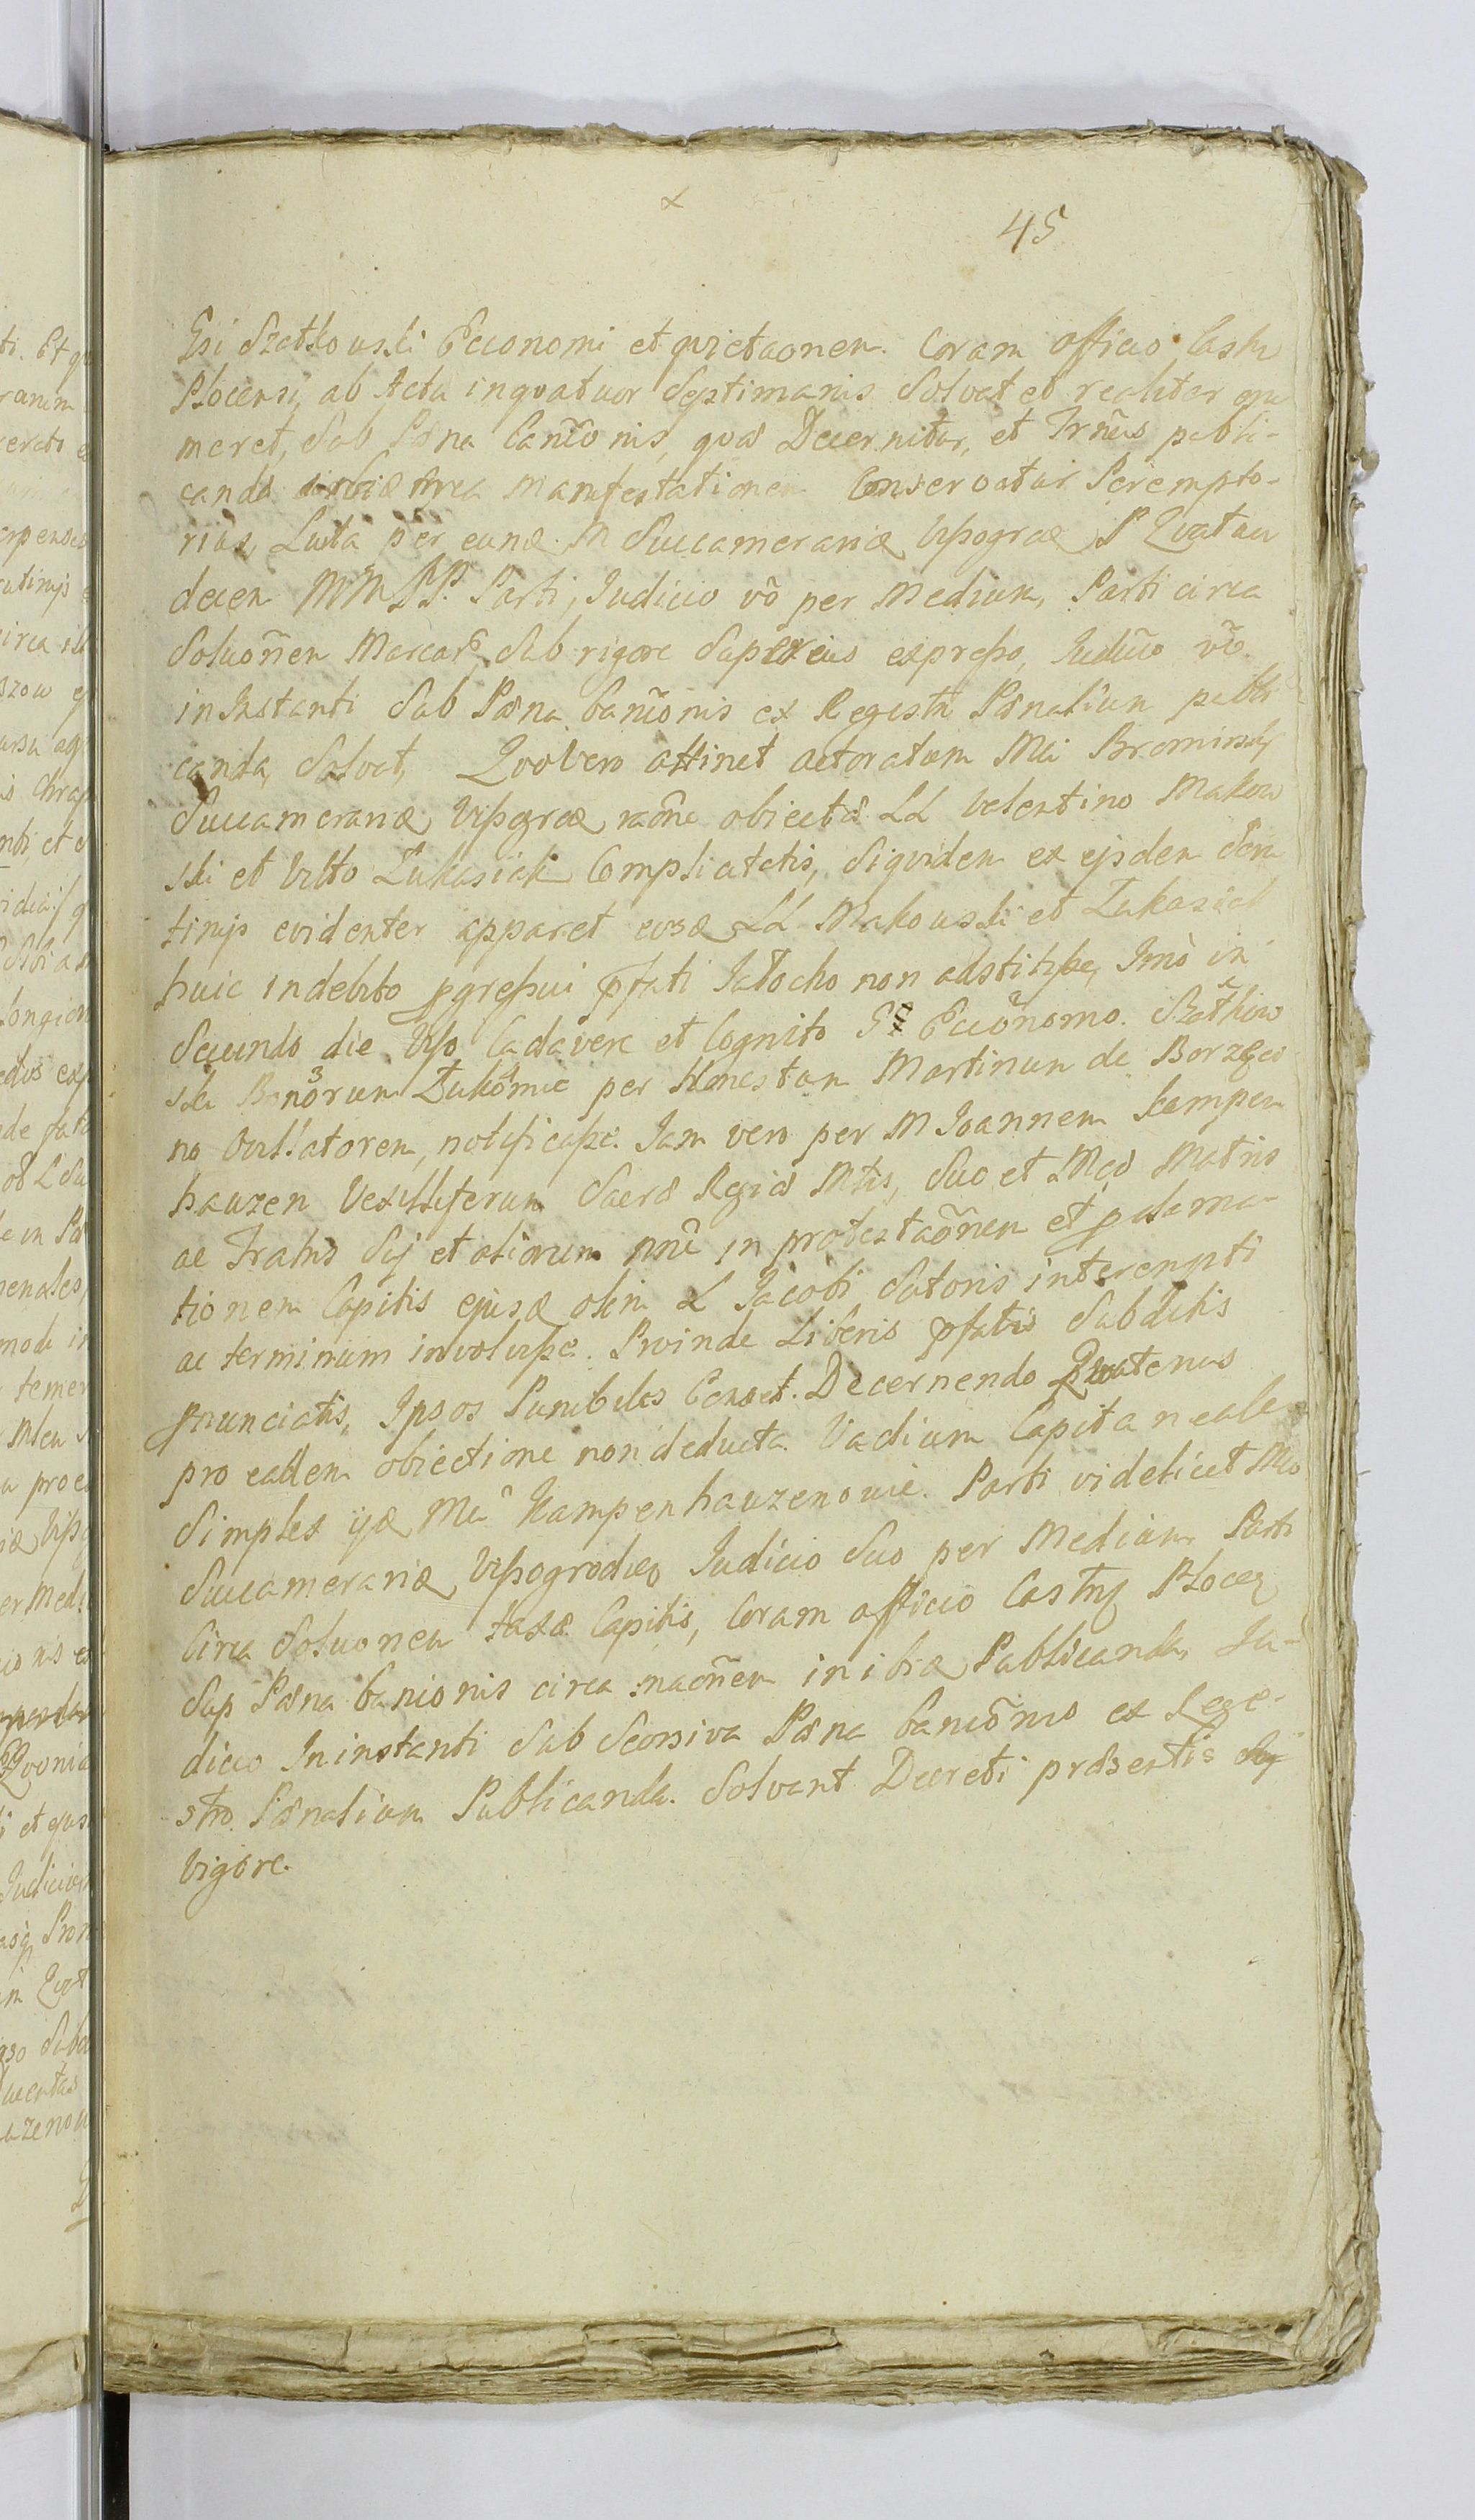 45
Gsi Szatkowski Economi et quietaonem. Coram officio Castri
Plocensi, ab Actu inquatuor Septimanis Solvat et realiter enu
meret, Sub Pœna banōnis, quæ Decernitur, et Trnēus publi-
canda circa manifestationem Conservatur Perempto-
rius, Luita per eund. M Succamerariū Vyssogrod P Quatuor
decem MM PP. Parti, Judicio vō per Medium, Parti circa
Soluōnem Marcar, Sub rigore Superius expresso, Judicio vō
in Instanti Sub Pœna banōnis ex Regestro Pœnalium publi
canda, Solvat, Quo vero attinet actoratum Mci Brominsky
Succamerarii Vyssogrod raōne obiecta LL Valentino Makow
ski et Vrlto Łukasiak Complicitatis, Siquidem ex ejsdem Scru
tinijs evidenter apparet eosd LL Makowski et Łukasiak
huic indebito pgressui pfati Jałocho non adstitisse, Imò in
Secundo die Viso Cadavere et Cognito Gs Ecconomo. Szathow
ski Bonorum Żukōmie per Honestum Martinum de Borzęci
no notificasse. Iam vero per M Ioannem Kampen
hauzen Vexilliferum Sacræ Regiæ Mtis, Suo et Mcæ Matris
ac Fratris Sij et aliorum nnē in protestaōnem et pclama-
tionem Capitis ejusd olim L Jacobi Satoris interempti
ac terminum involusse. Proinde Liberis pfatis Subditis
pnunciatis, Ipsos Punibiles Censet. Decernendo Quatenus
pro eadem obiectione non deducta Vadium Capitaneale
Simplex ijd Mci Kampenhauzenowie. Parti videlicet Mco
Succamerario Vyssogrodien Judicio Suo per Medium Parti
Circa Soluonem taxæ Capitis, Coram officio Castri Plocen
Sup Pœna banionis circa maōnem inibi Publicanda, Iu-
dicio Ininstanti Sub Seorsiva Pœna banōnis ex Rege-
stro Pœnalium Publicanda. Solvant Decreti præsentis
Vigore.